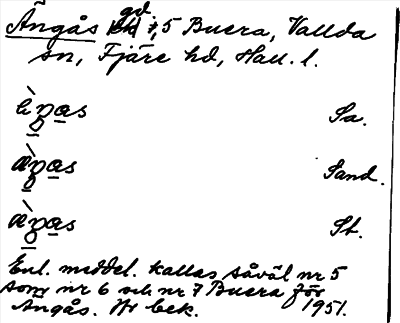 Ängås gd, 5 Buera, Vallda
sn, Fjäre hd, Hall. l.
Sa.
Sand.
St.
Enl. meddel. kallas såväl nr 5
som nr 6 och nr 7 Buera för
Ängås. Ar bek. 1951.